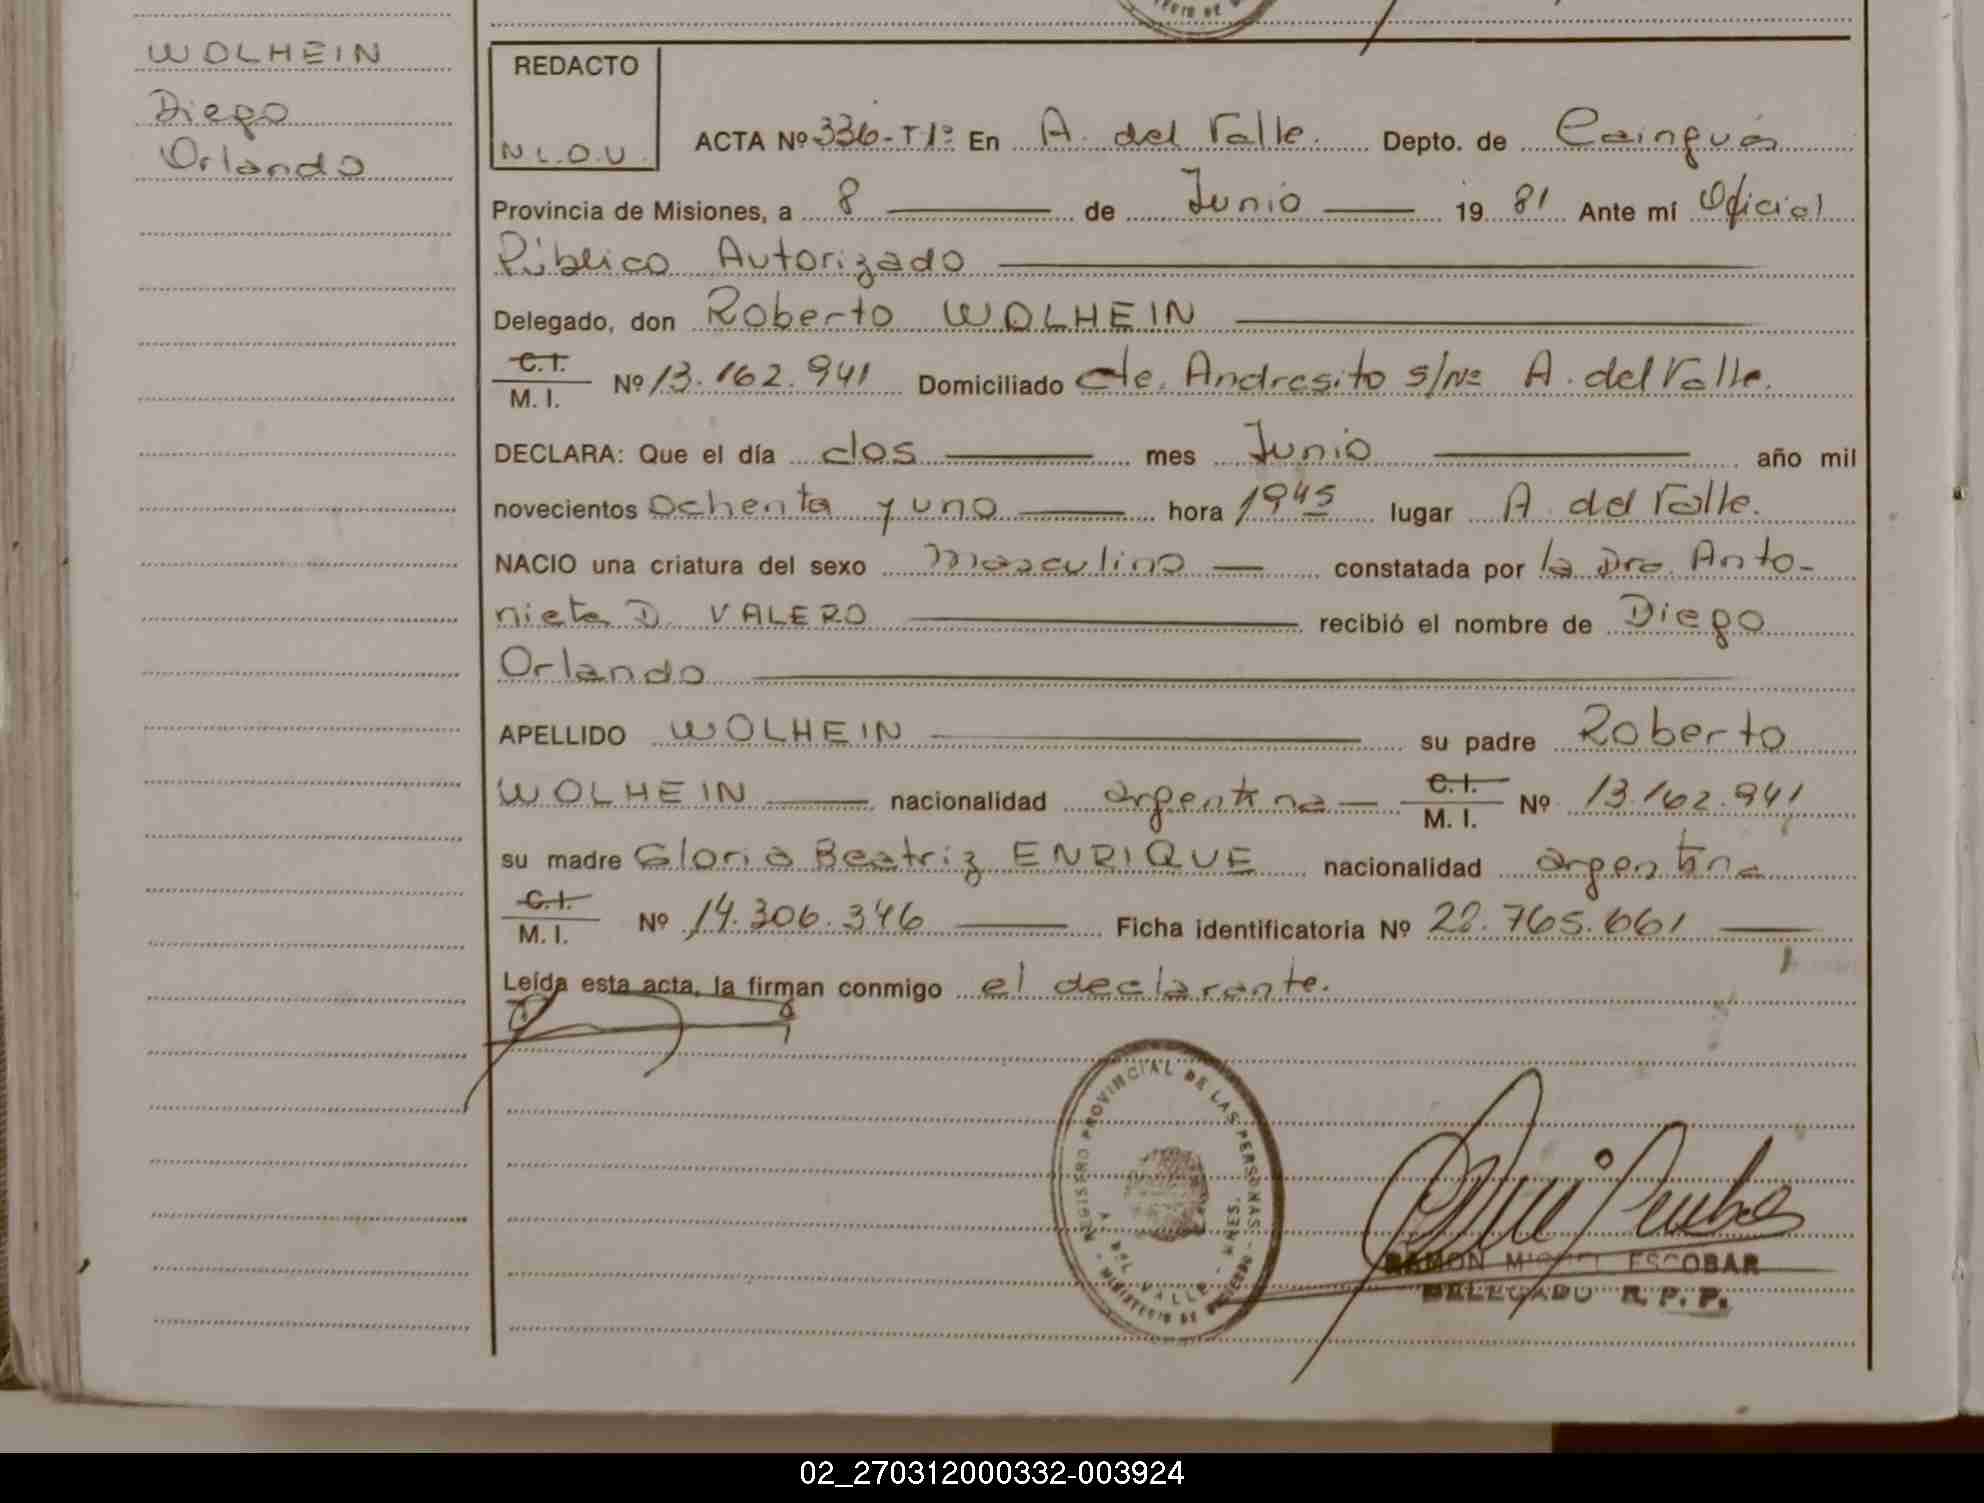 WOLHEIN
Diego
Orlando
REDACTO
N.L.O.U.
ACTA Nº 336-T1º En A. del Valle. Depto. de Cainguás
Provincia de Misiones, a 8 de Junio 19 81 Ante mí Oficial
Público Autorizado
Delegado, don Roberto WOLHEIN
C.I.
M. I. Nº 13.162.941 Domiciliado Cte. Andresito s/Nº A. del Valle.
DECLARA: Que el día dos mes Junio año mil
novecientos ochenta y uno hora 1945 lugar A. del Valle.
NACIO una criatura del sexo masculino constatada por la Dra. Anto-
nieta D. VALERO recibió el nombre de Diego
Orlando
APELLIDO WOLHEIN su padre Roberto
WOLHEIN nacionalidad argentina C.I.
M. I. Nº 13.162.941
su madre Gloria Beatriz ENRIQUE nacionalidad argentina
C.I.
M. I. Nº 14.306.346 Ficha identificatoria Nº 28.765.661
Leída esta acta, la firman conmigo el declarante.
REGISTRO PROVINCIAL DE LAS PERSONAS - MNES.
A. DEL VALLE
MINISTERIO DE GOBIERNO
RAMON MIGUEL ESCOBAR
DELEGADO R. P. P.
02_270312000332-003924